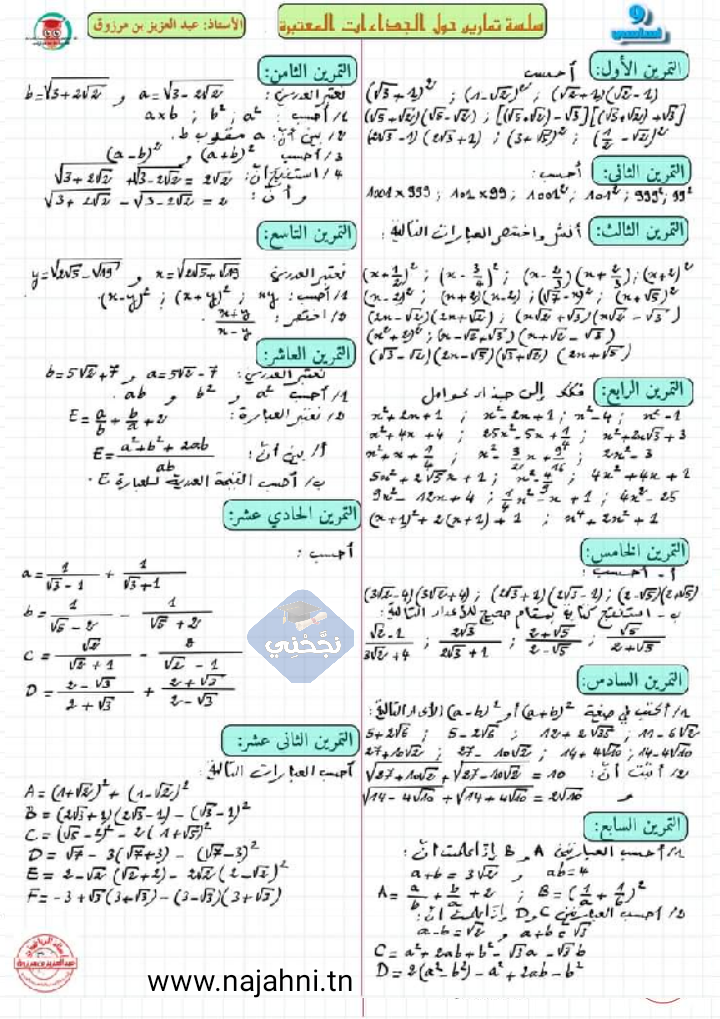 9 أساسي
سلسلة تمارين حول الجداءات المعتبرة
الأستاذ: عبد العزيز بن مرزوق
التمرين الأول: أحسب
(√3+1)² ; (1-√2)² ; (√2+1)(√2-1)
(√5+√2)(√5-√2) ; [(√5+√2)-√3][(√5+√2)+√3]
(2√3-1)(2√3+1) ; (3+√5)² ; (1/2-√2)²
التمرين الثاني: أحسب:
1001×999 ; 101×99 ; 1001² ; 101² ; 999² ; 99²
التمرين الثالث: أنشر واختصر العبارات التالية:
(x+1/2)² ; (x-3/4)² ; (x-2/3)(x+2/3) ; (x+2)²
(x-2)² ; (x+2)(x-2) ; (√7-x)² ; (x+√5)²
(2x-√2)(2x+√2) ; (x√2+√3)(x√2-√3)
(x²+2)² ; (x-√2+√3)(x+√2-√3)
(√3-√2)(2x-√5)(√3+√2)(2x+√5)
التمرين الرابع: فكك إلى جذاء عوامل
x²+2x+1 ; x²-2x+1 ; x²-4 ; x²-1
x²+4x+4 ; 25x²-5x+1/4 ; x²+2x√3+3
x²+x+1/4 ; x²-3/2x+9/16 ; 2x²-3
5x²+2√5x+1 ; x²-4/9 ; 4x²+4x+1
9x²-12x+4 ; 1/4x²-x+1 ; 4x²-25
(x+1)²+2(x+1)+1 ; x⁴+2x²+1
التمرين الخامس:
أ- أحسب:
(3√2-4)(3√2+4) ; (2√3+1)(2√3-1) ; (2-√5)(2+√5)
ب- استنتج كتابة بمقام صحيح للأعداد التالية:
(√2-1)/(3√2+4) ; 2√3/(2√3+1) ; (2+√5)/(2-√5) ; √5/(2+√5)
التمرين السادس:
1/ أكتب في صيغة (a+b)² أو (a-b)² الأعداد التالية:
5+2√6 ; 5-2√6 ; 12+2√35 ; 11-6√2
27+10√2 ; 27-10√2 ; 14+4√10 ; 14-4√10
2/ أثبت أنّ: √(27+10√2) + √(27-10√2) = 10
و √(14-4√10) + √(14+4√10) = 2√10
التمرين السابع:
1/ أحسب العبارتين A و B إذا علمت أنّ:
a+b=3√2 و ab=4
A=a/b+b/a+2 ; B=(1/a+1/b)²
2/ أحسب العبارتين C و D إذا علمت أنّ:
a-b=√2 و a+b=√3
C=a²+2ab+b²-√3a-√3b
D=2(a²-b²)-a²+2ab-b²
التمرين الثامن:
نعتبر العددين: a=√(3-2√2) و b=√(3+2√2)
1/ أحسب: a² ; b² ; a×b
2/ بيّن أنّ: a مقلوب b.
3/ احسب (a+b)² و (a-b)²
4/ استنتج أنّ: √(3+2√2)+√(3-2√2)=2√2
و أنّ: √(3+2√2)-√(3-2√2)=2
التمرين التاسع:
نعتبر العددين x=√(2√5+√19) و y=√(2√5-√19)
1/ أحسب: xy ; (x+y)² ; (x-y)².
2/ اختصر: (x+y)/(x-y).
التمرين العاشر:
نعتبر العددين: a=5√2-7 و b=5√2+7
1/ أحسب a² و b² و ab.
2/ نعتبر العبارة: E=a/b+b/a+2
أ/ بيّن أنّ: E=(a²+b²+2ab)/ab
ب/ أحسب القيمة العددية للعبارة E.
التمرين الحادي عشر:
أحسب:
a=1/(√3-1)+1/(√3+1)
b=1/(√5-2)-1/(√5+2)
C=√2/(√2+1)-2/(√2-1)
D=(2-√3)/(2+√3)+(2+√3)/(2-√3)
التمرين الثاني عشر:
أحسب العبارات التالية:
A=(1+√2)²+(1-√2)²
B=(2√3+1)(2√3-1)-(√3-1)²
C=(√5-2)²-2(1+√5)²
D=√7-3(√7+3)-(√7-3)²
E=2-√2(√2+2)-2√2(2-√2)²
F=-3+√3(3+√3)-(3-√3)(3+√3)
نجّحني
www.najahni.tn